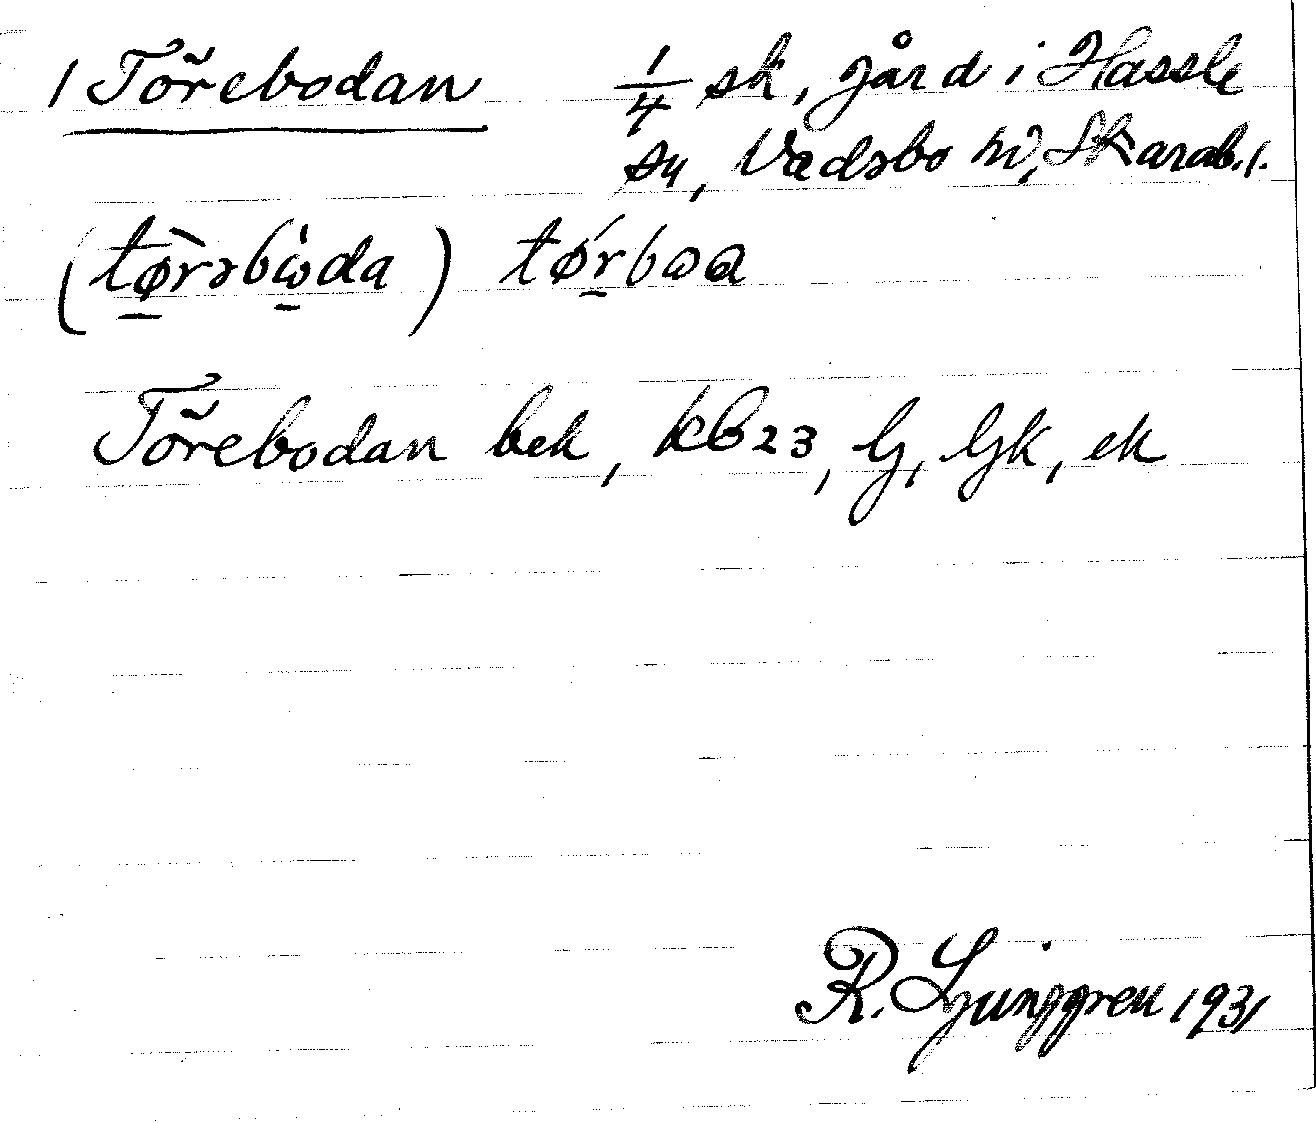 1 Törebodan 1/4 sk, gård i Hassle
sn, Vadsbo hd, Skarab. l.
(tø̀rəbὼda) tǿrbωɑ
Törebodan bek, kb23, lj, ljk, ek
R. Ljunggren 1931